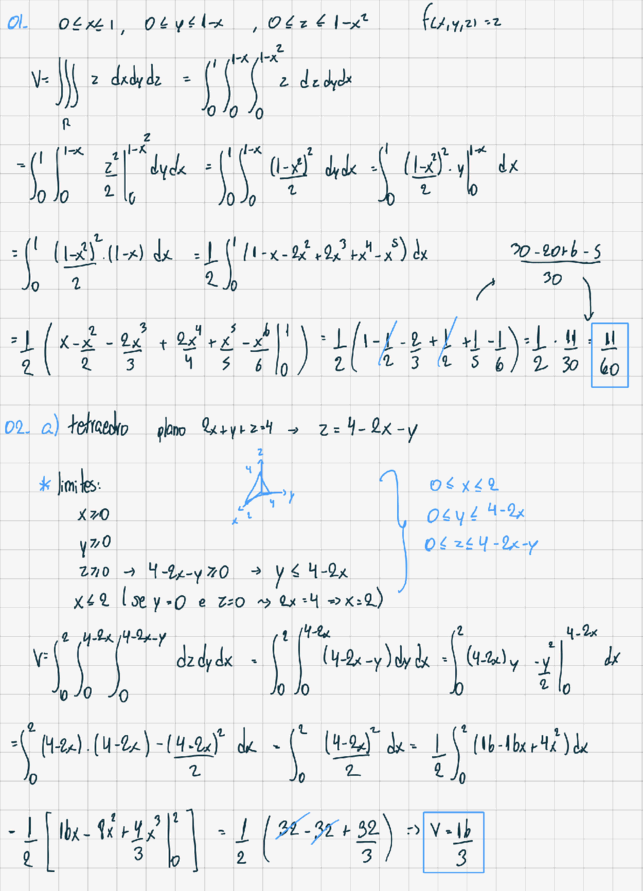 01. 0≤x≤1, 0≤y≤1-x, 0≤z≤1-x² f(x,y,z)=z
V=∭_R z dxdydz = ∫₀¹∫₀^(1-x)∫₀^(1-x²) z dzdydx
=∫₀¹∫₀^(1-x) z²/2 |₀^(1-x²) dydx = ∫₀¹∫₀^(1-x) (1-x²)²/2 dydx =∫₀¹ (1-x²)²/2 · y|₀^(1-x) dx
=∫₀¹ (1-x²)²/2 ·(1-x) dx = 1/2 ∫₀¹ (1-x-2x²+2x³+x⁴-x⁵) dx
30-20+6-5/30
=1/2 (x-x²/2 - 2x³/3 + 2x⁴/4 + x⁵/5 - x⁶/6 |₀¹) = 1/2 (1-1/2-2/3+1/2+1/5-1/6) = 1/2 · 11/30 = 11/60
02. a) tetraedro plano 2x+y+z=4 → z=4-2x-y
* limites:
z
4
y
4
x
2
x≥0
y≥0
z≥0 → 4-2x-y≥0 → y≤4-2x
x≤2 (se y=0 e z=0 ⇝ 2x=4 ⇒ x=2)
0≤x≤2
0≤y≤4-2x
0≤z≤4-2x-y
V=∫₀²∫₀^(4-2x)∫₀^(4-2x-y) dzdydx = ∫₀²∫₀^(4-2x) (4-2x-y)dydx = ∫₀² (4-2x)y - y²/2 |₀^(4-2x) dx
=∫₀² (4-2x).(4-2x) - (4-2x)²/2 dx = ∫₀² (4-2x)²/2 dx = 1/2 ∫₀² (16-16x+4x²)dx
= 1/2 [16x - 8x² + 4/3 x³ |₀²] = 1/2 (32-32+32/3) ⇒ V=16/3